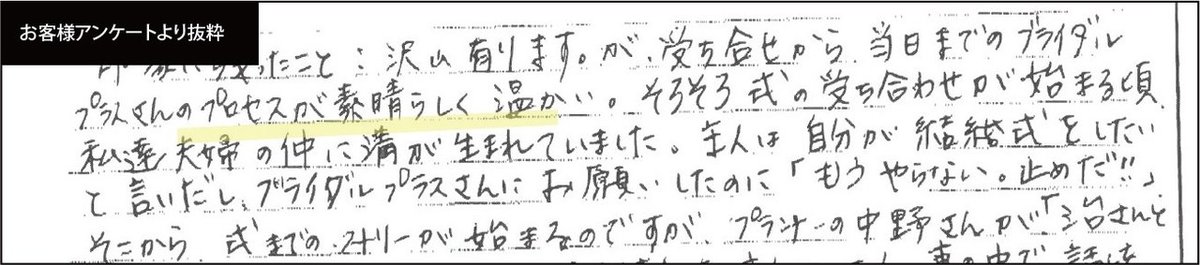 お客様アンケートより抜粋
印象に残ったこと：沢山有ります。が、受ち合せから、当日までのブライダル
プラスさんのプロセスが素晴らしく温かい。そろそろ式の受ち合わせが始まる頃
私達夫婦の仲に溝が生まれていました。主人は自分が結婚式をしたい
と言いだし、ブライダルプラスさんにお願いしたのに「もうやらない。止めだ!!」
そこから、式までのストーリーが始まるのですが、プランナーの中野さんが、「治さんと
車の中で話を